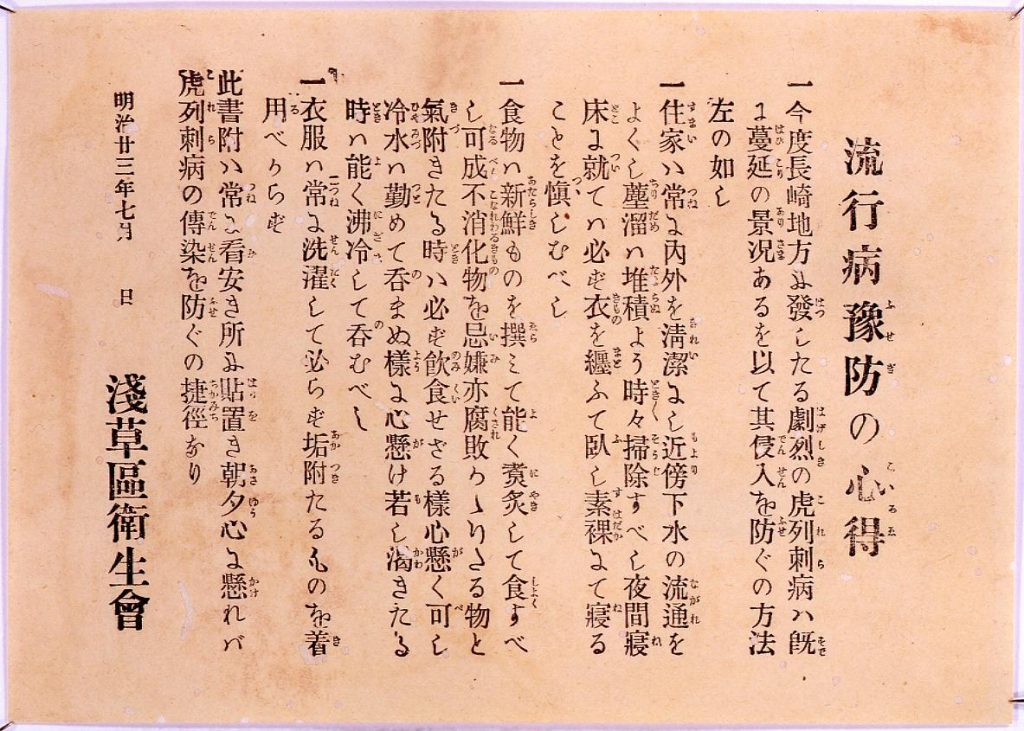 流行病豫防の心得
一今度長崎地方に發したる劇烈の虎列刺病ハ既
に蔓延の景况あるを以て其侵入を防ぐの方法
左の如し
一住家ハ常に內外を淸潔にし近傍下水の流通を
よくし塵溜ハ堆積よう時々掃除すべし夜間寢
床に就てハ必ず衣を纒ふて臥し素裸にて寢る
ことを愼しむべし
一食物ハ新鮮ものを撰ミて能く煑炙して食すべ
し可成不消化物を忌嫌亦腐敗かゝりたる物と
氣附きたる時ハ必ず飮食せざる樣心懸く可し
冷水ハ勤めて呑まぬ樣に心懸け若し渴きたる
時ハ能く沸冷して呑むべし
一衣服ハ常に洗濯して必らず垢附たるものを着
用べからず
此書附ハ常に看安き所に貼置き朝夕心に懸れバ
虎列刺病の傳染を防ぐの捷徑なり
明治廿三年七月 日
淺草區衛生會